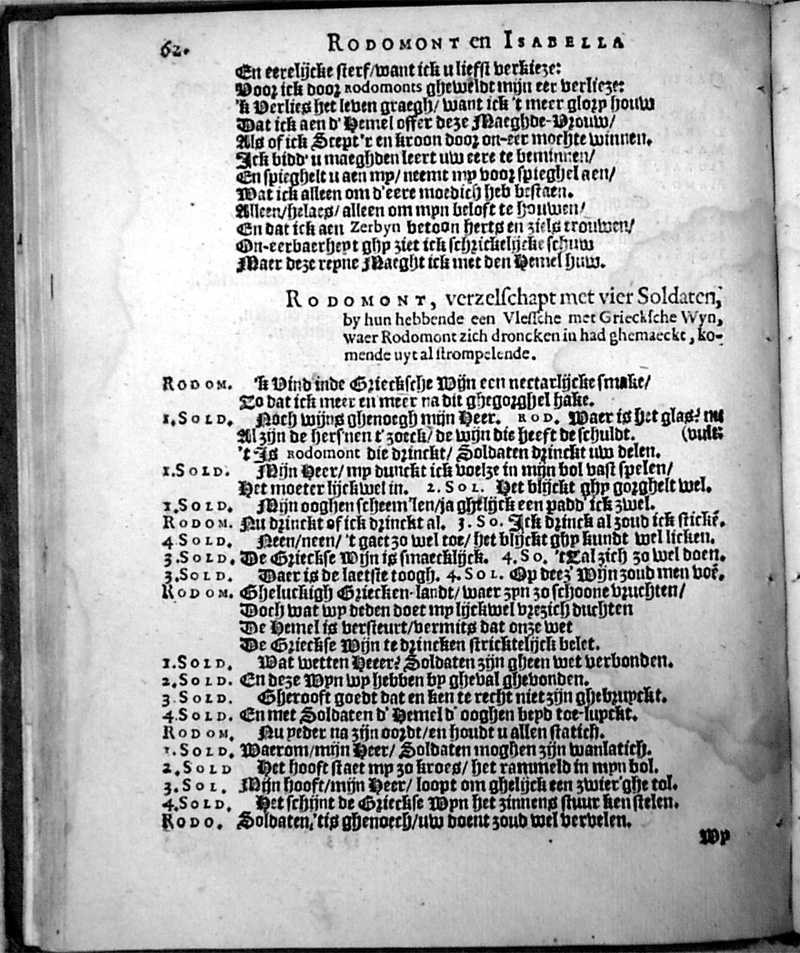 62. RODOMONT en ISABELLA
En eerelijcke sterf/want ick u liefst verkieze:
Voor ick door Rodomonts gheweldt mijn eer verlieze:
'k Verlies het leven graegh/ want ick 't meer glory houw
Dat ick aen d' Hemel offer deze Maeghde-Vrouw/
Als of ick Scept'r en kroon door on-eer mochte winnen.
Ick bidd' u maeghden leert uw eere te beminnen/
En spieghelt u aen my/ neemt my voor spieghel aen/
Wat ick alleen om d'eere moedich heb bestaen.
Alleen/helaes/ alleen om myn beloft te houwen/
En dat ick aen Zerbyn betoon herts en ziels trouwen/
On-eerbaerheyt ghy ziet ick schrickelijcke schuw
Maer deze reyne Maeght ick met den Hemel huw.
RODOMONT, verzelschapt met vier Soldaten,
by hun hebbende een Vlessche met Grieksche Wyn,
waer Rodomont zich droncken in had ghemaeckt, ko-
mende uyt al strompelende.
RODOM. 'k Vind inde Griecksche Wijn een nectarlijcke smake/
Zo dat ick meer en meer na dit ghegorghel hake.
1.SOLD. Noch wijns ghenoegh mijn Heer. ROD. Waer is het glas? nu
Al zijn de hers'nen t'zoeck/ de wijn die heeft de schuldt. (vult:
't Is Rodomont die drinckt/ Soldaten drinckt uw delen.
1.SOLD. Mijn Heer/ my dunckt ick voel ze in mijn bol vast spelen/
Het moeter lijckwel in. 2.SOL. Het blijckt ghy gorghelt wel.
1.SOLD. Mijn ooghen scheem'len/ja ghelijck een padd' ick zwel.
RODOM. Nu drinckt of ick drinckt al. 3.SO. Ick drinck al zoud ick sticke͂.
4 SOLD. Neen/neen/ 't gaet zo wel toe/ het blijckt ghy kundt wel licken.
3.SOLD. De Grieckse Wijn is smaecklijck. 4.SO. 't Zal zich zo wel doen.
3.SOLD. Daer is de laetste toogh. 4.SOL. Op deez' Wijn zoud men voe͂.
RODOM. Gheluckigh Griecken-landt/ waer zyn zo schoone vruchten/
Doch wat wy deden doet my lijckwel vrezich duchten
De Hemel is versteurt/vermits dat onze wet
De Grieckse Wijn te drincken stricktelijck belet.
1.SOLD. Wat wetten Heeer? Soldaten zijn gheen wet verbonden.
2.SOLD. En deze Wyn wy hebben by gheval ghevonden.
3 SOLD. Gherooft goedt dat en ken te recht niet zijn ghebruyckt.
4.SOLD. En met Soldaten d' Hemel d' ooghen beyd toe-luyckt.
RODOM. Nu yeder na zijn oordt/en houdt u allen statich.
1.SOLD. Waerom/mijn Heer/ Soldaten moghen zijn wanlatich.
2.SOLD Het hooft staet my zo kroes/ het rammeld in myn bol.
3.SOL. Mijn hooft/mijn Heer/ loopt om ghelijck een zwier'ghe tol.
4.SOLD. Het schijnt de Grieckse Wyn het zinnens stuur ken stelen.
RODO. Soldaten/'tis ghenoech/uw doent zoud wel vervelen.
Wy